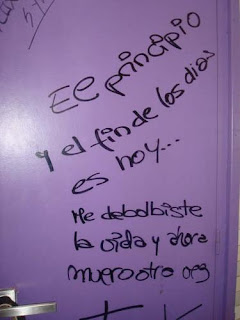 El principio
y el fin de los dias
es hoy...
Me debolbiste
la vida y ahora
muero otra